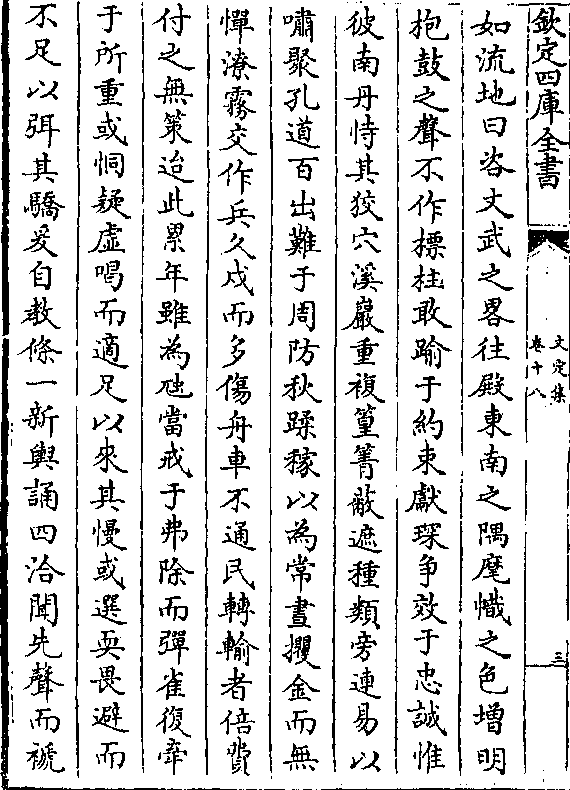 欽定四庫全書
文定集
卷十八
三
如流地曰咨文武之畧往殿東南之隅麾幟之色增明
枹鼓之聲不作標柱敢踰于約束獻琛争效于忠誠惟
彼南丹恃其狡穴溪巖重複篁箐蔽遮種類旁連易以
嘯聚孔道百出難于周防秋蹂稼以為常晝攫金而無
憚潦霧交作兵久戍而多傷舟車不通民轉輸者倍費
付之無策迨此累年雖為虺當戒于弗除而彈雀復牽
于所重或恫疑虚喝而適足以來其慢或選耎畏避而
不足以弭其驕爰自教條一新輿誦四洽聞先聲而褫